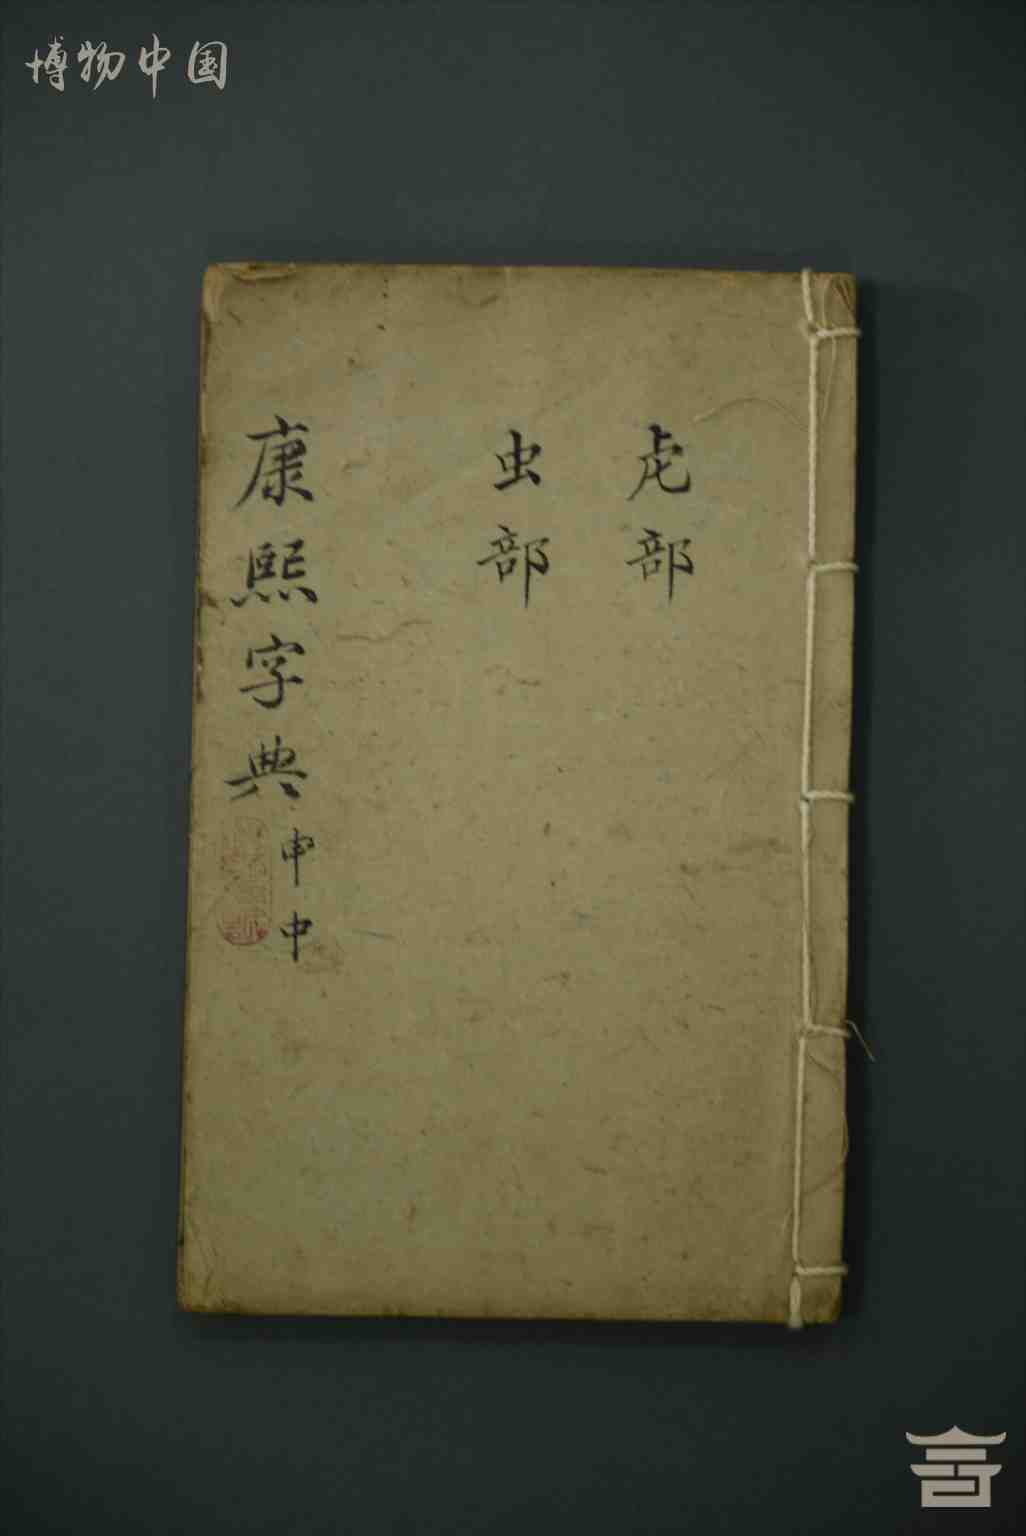 博物中国
虍部
虫部
康熙字典
申中